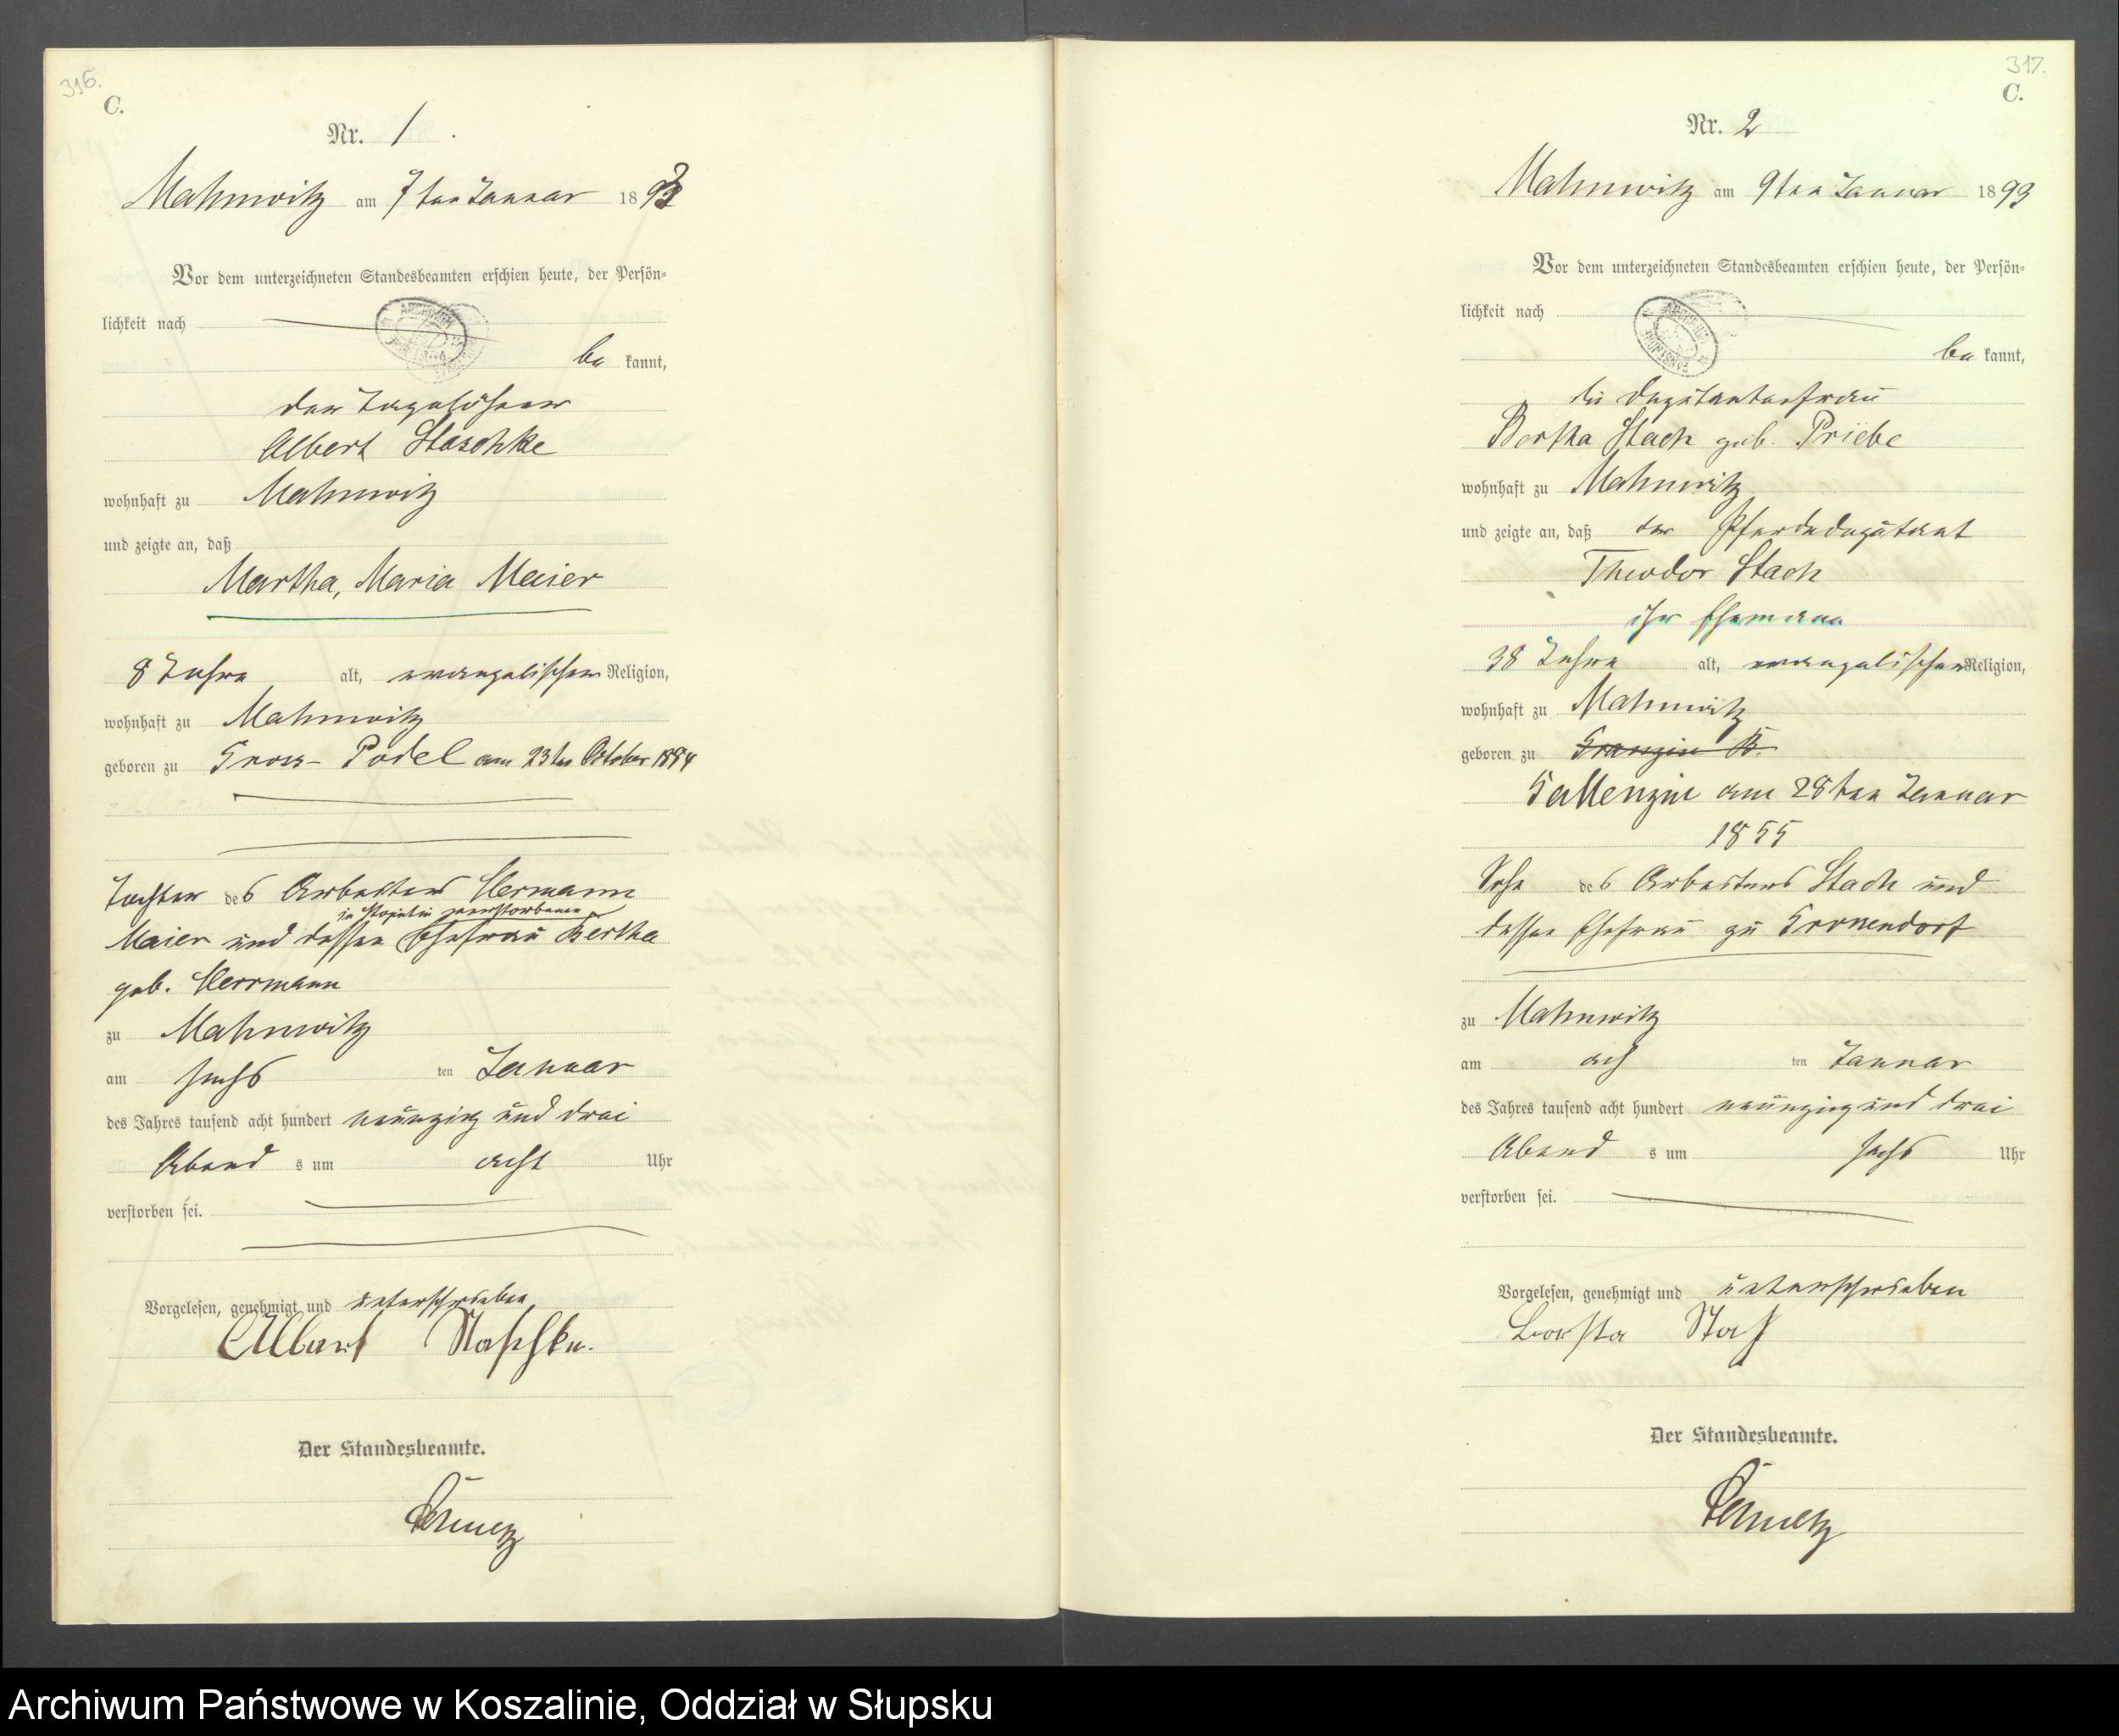 316.
C.
Nr. 1
Mahnwitz am 7ten Januar 1893
Vor dem unterzeichneten Standesbeamten erschien heute, der Persön-
lichkeit nach
be kannt,
der Tagelöhner
Albert Staschke
wohnhaft zu Mahnwitz
und zeigte an, daß
Martha, Maria Maier
8 Jahre alt, evangelischer Religion,
wohnhaft zu Mahnwitz
geboren zu Gross-Podel am 23ten October 1884
Tochter des Arbeiters Hermann
verstorbenen
Maier und dessen Ehefrau Bertha
geb. Herrmann
zu Mahnwitz
am sechs ten Januar
des Jahres tausend acht hundert neunzig und drei
Abend s um acht Uhr
verstorben sei.
Vorgelesen, genehmigt und unterschrieben
Albert Staschke.
Der Standesbeamte.
317.
C.
Nr. 2
Mahnwitz am 9ten Januar 1893
Vor dem unterzeichneten Standesbeamten erschien heute, der Persön-
lichkeit nach
be kannt,
die Deputantenfrau
Bertha Stach geb. Priebe
wohnhaft zu Mahnwitz
und zeigte an, daß der Pferdedeputant
Theodor Stach
ihr Ehemann
38 Jahre alt, evangelischer Religion,
wohnhaft zu Mahnwitz
geboren zu
Gallenzin am 28ten Januar
1855
Sohn des Arbeiters Stach und
dessen Ehefrau zu Gronendorf
zu Mahnwitz
am ach ten Januar
des Jahres tausend acht hundert neunzig und drei
Abend s um sechs Uhr
verstorben sei.
Vorgelesen, genehmigt und unterschrieben
Bertha Stach
Der Standesbeamte.
Archiwum Państwowe w Koszalinie, Oddział w Słupsku